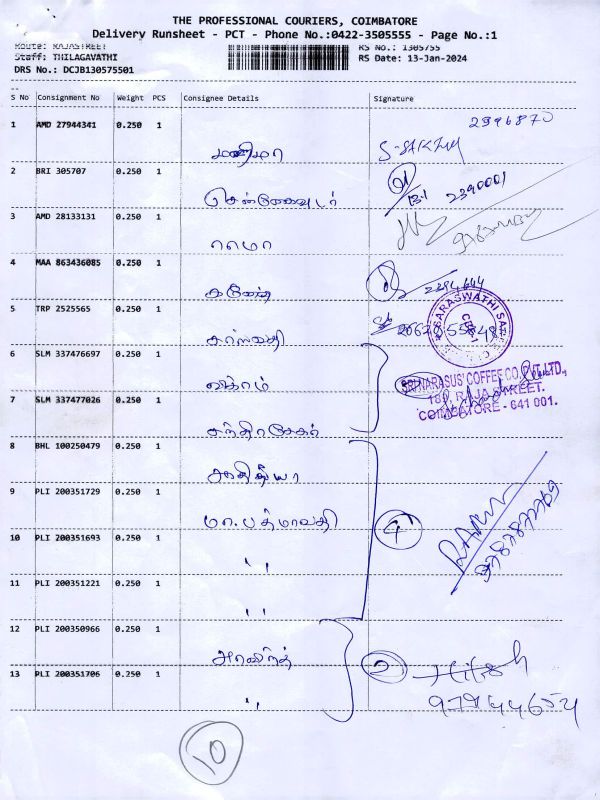 THE PROFESSIONAL COURIERS, COIMBATORE
Delivery Runsheet - PCT - Phone No.:0422-3505555 - Page No.:1
Route: RAJASTREET
RS No.: 1305755
Staff: THILAGAVATHI
RS Date: 13-Jan-2024
DRS No.: DCJB130575501
S No Consignment No Weight PCS Consignee Details Signature
1 AMD 27944341 0.250 1
2996870
2 BRI 305707 0.250 1
2390001
3 AMD 28133131 0.250 1
ரமா
4 MAA 863436085 0.250 1
கணேஷ்
5 TRP 2525565 0.250 1
சரஸ்வதி
6 SLM 337476697 0.250 1
SRI NARASUS COFFEE CO. PVT. LTD.,
180, RAJA STREET.
COIMBATORE - 641 001.
7 SLM 337477026 0.250 1
சந்திரசேகர்
8 BHL 100250479 0.250 1
ஆதித்யா
9 PLI 200351729 0.250 1
மா.பத்மாவதி
4
10 PLI 200351693 0.250 1
"
11 PLI 200351221 0.250 1
"
12 PLI 200350966 0.250 1
அரவிந்த்
2 Hitesh
13 PLI 200351706 0.250 1
"
10